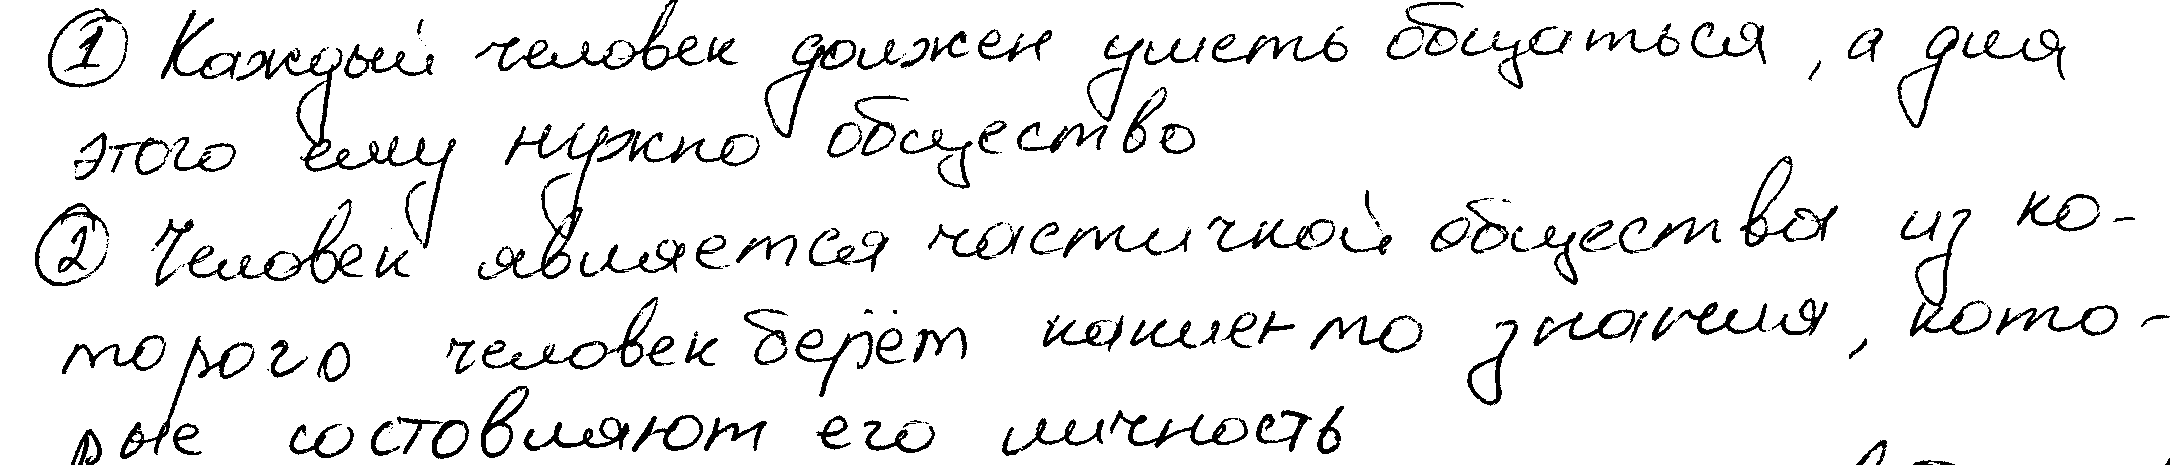 ① Каждый человек должен уметь общаться, а для
этого ему нужно общество
② Человек является частичкой общества из ко-
торого человек берёт какие-то значения, кото-
рые состовляют его личность